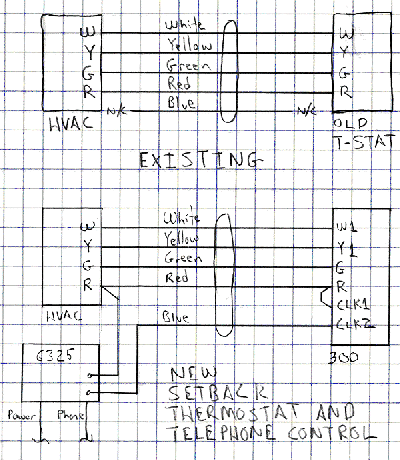 W White W
Y Yellow Y
G Green G
R Red R
N/C Blue N/C
HVAC
OLD
T-STAT
EXISTING
W White W1
Y Yellow Y1
G Green G
R Red R
CLK1
HVAC Blue CLK2
300
6325
Power Phone
NEW
SETBACK
THERMOSTAT AND
TELEPHONE CONTROL